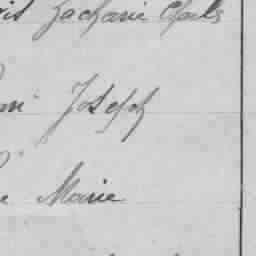 Zacharie Charles
Joseph
Marie